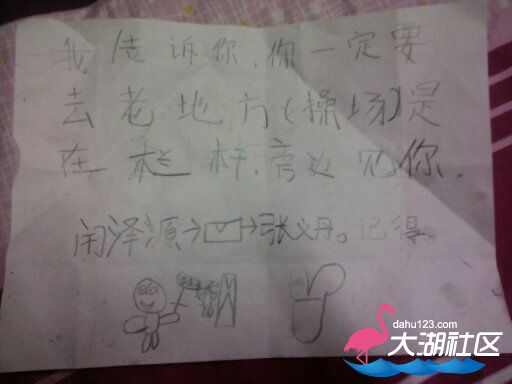 我告诉你,你一定要
去老地方(操场)是
在栏杆,旁边见你.
闻泽源→✉→张义丹。记得。
dahu123.com
大湖社区